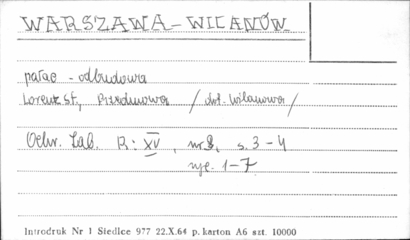 WARSZAWA - WILANÓW
pałac - odbudowa
Lorentz St, Przedmowa / dot. Wilanowa /
Ochr. Zab. R: XV, nr 2, s. 3 - 4
ryc. 1 - 7
Introdruk Nr 1 Siedlce 977 22.X.64 p. karton A6 szt. 10000